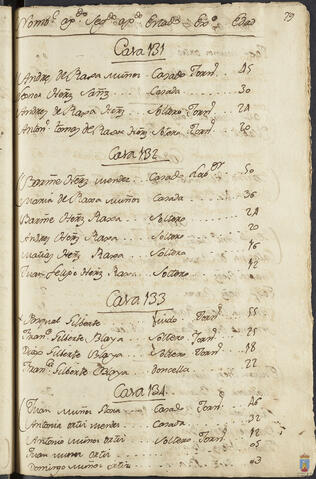 79
Nomb.e ap.do Seg.do ap.do Estado Exº Edad
Casa 131
Andres de Raxa Muños Casado Jorn.º 45
Hern.z Sanz Casada 30
Andres de Raxa Hern.z Soltero Jorn.º 24
Anton.º Tomas de Raxa Hern.z Soltero Jorn.º 20
Casa 132
Barme Hern.z Mendez Casado Lab.or 50
Maria de Raxa Muños Casada 36
Barme Hern.z Raxa Soltero 24
Andres Hern.z Raxa Soltero 20
Matias Hern.z Raxa Soltero 16
Juan Felipe Hern.z Raxa Soltero 12
Casa 133
Gilberte Viudo Jorn.º 55
Fran.co Gilberte Blaya Soltero Jorn.º 25
Diego Gilberte Blaya Soltero Jorn.º 18
Fran.ca Gilberte Blaya Doncella 22
Casa 134
Juan Muños Casad. Jorn.º 46
Antonia Ortiz Mendez Casada 32
Antonio Muños Ortiz Soltero Jorn.º 12
Juan Muños Ortiz 05
Domingo Muños Ortiz 03